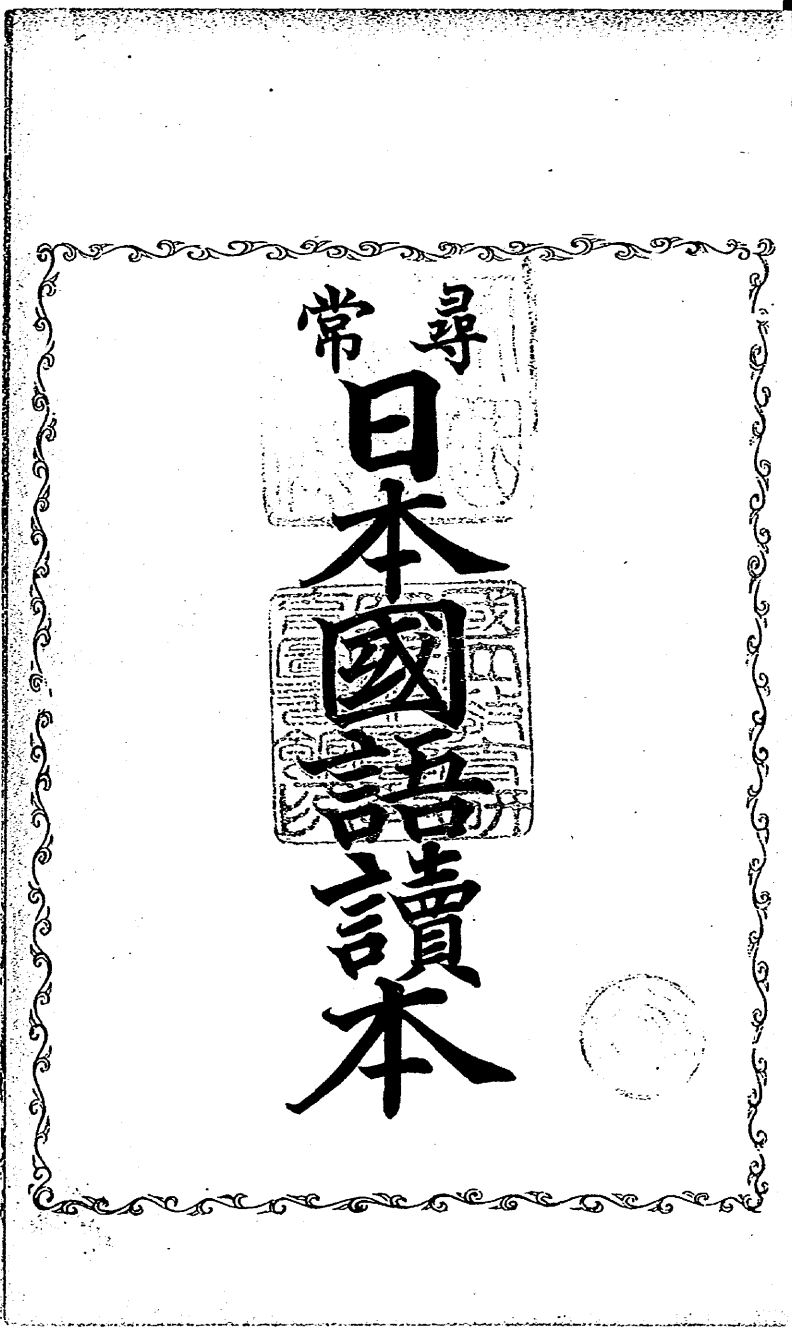 尋常
日本國語讀本